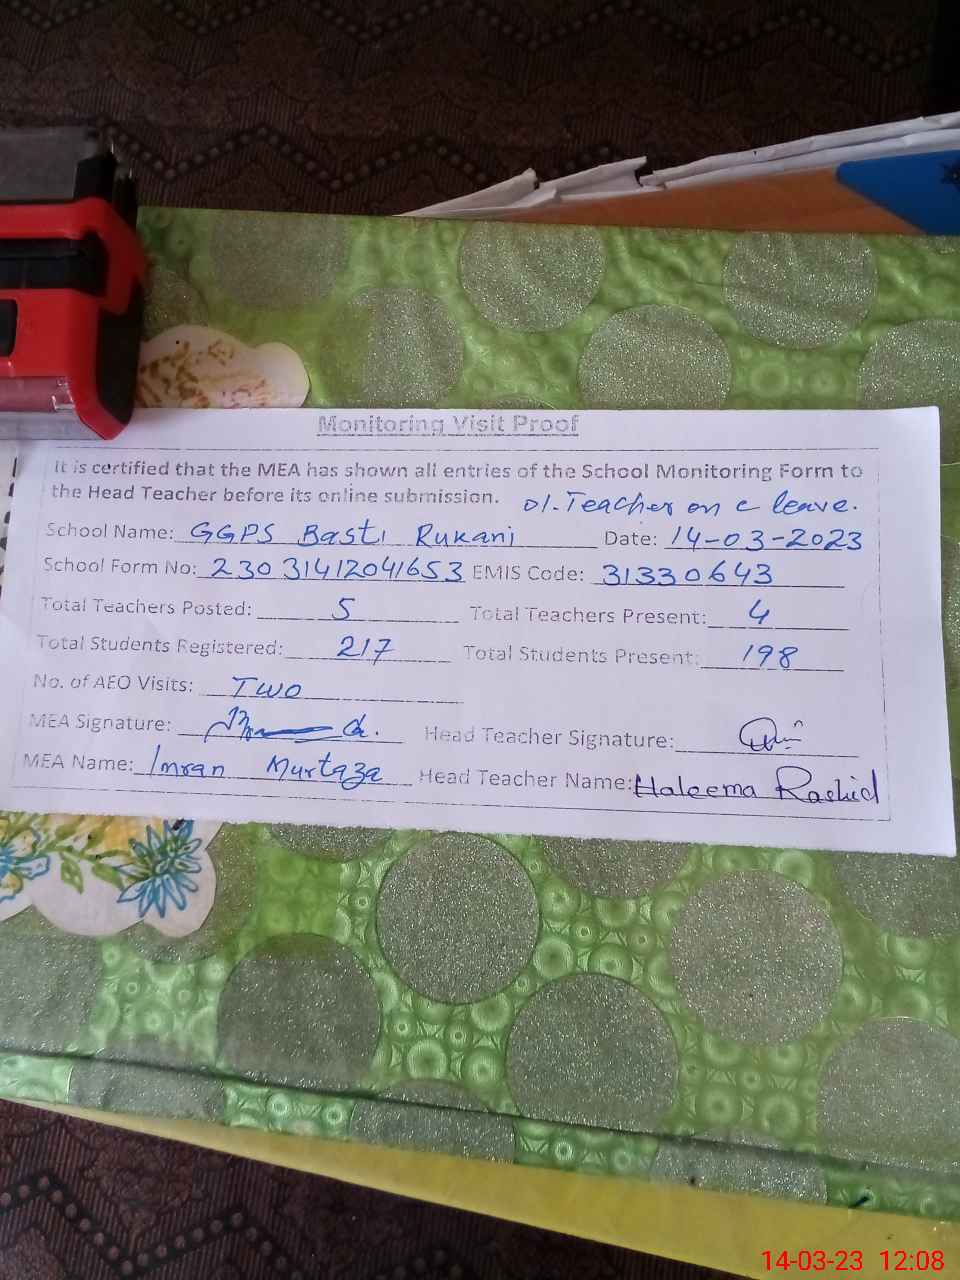 Monitoring Visit Proof
It is certified that the MEA has shown all entries of the School Monitoring Form to
the Head Teacher before its online submission. 01.Teacher on c leave.
School Name: GGPS Basti Rukani Date: 14-03-2023
School Form No: 23031412041653 EMIS Code: 31330643
Total Teachers Posted: 5 Total Teachers Present: 4
Total Students Registered: 217 Total Students Present: 198
No. of AEO Visits: Two
MEA Signature: Head Teacher Signature:
MEA Name: Imran Murtaza Head Teacher Name: Haleema Rashid
14-03-23 12:08